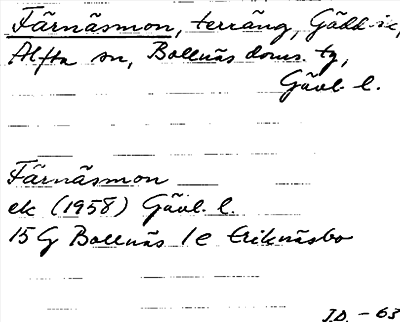 Färnäsmon, terräng,
Alfta sn, Bollnäs doms. tg,
Gävl. l.
Färnäsmon
ek (1958) Gävl. l.
15G Bollnäs 1e Eriknäsbo
J.D. - 63